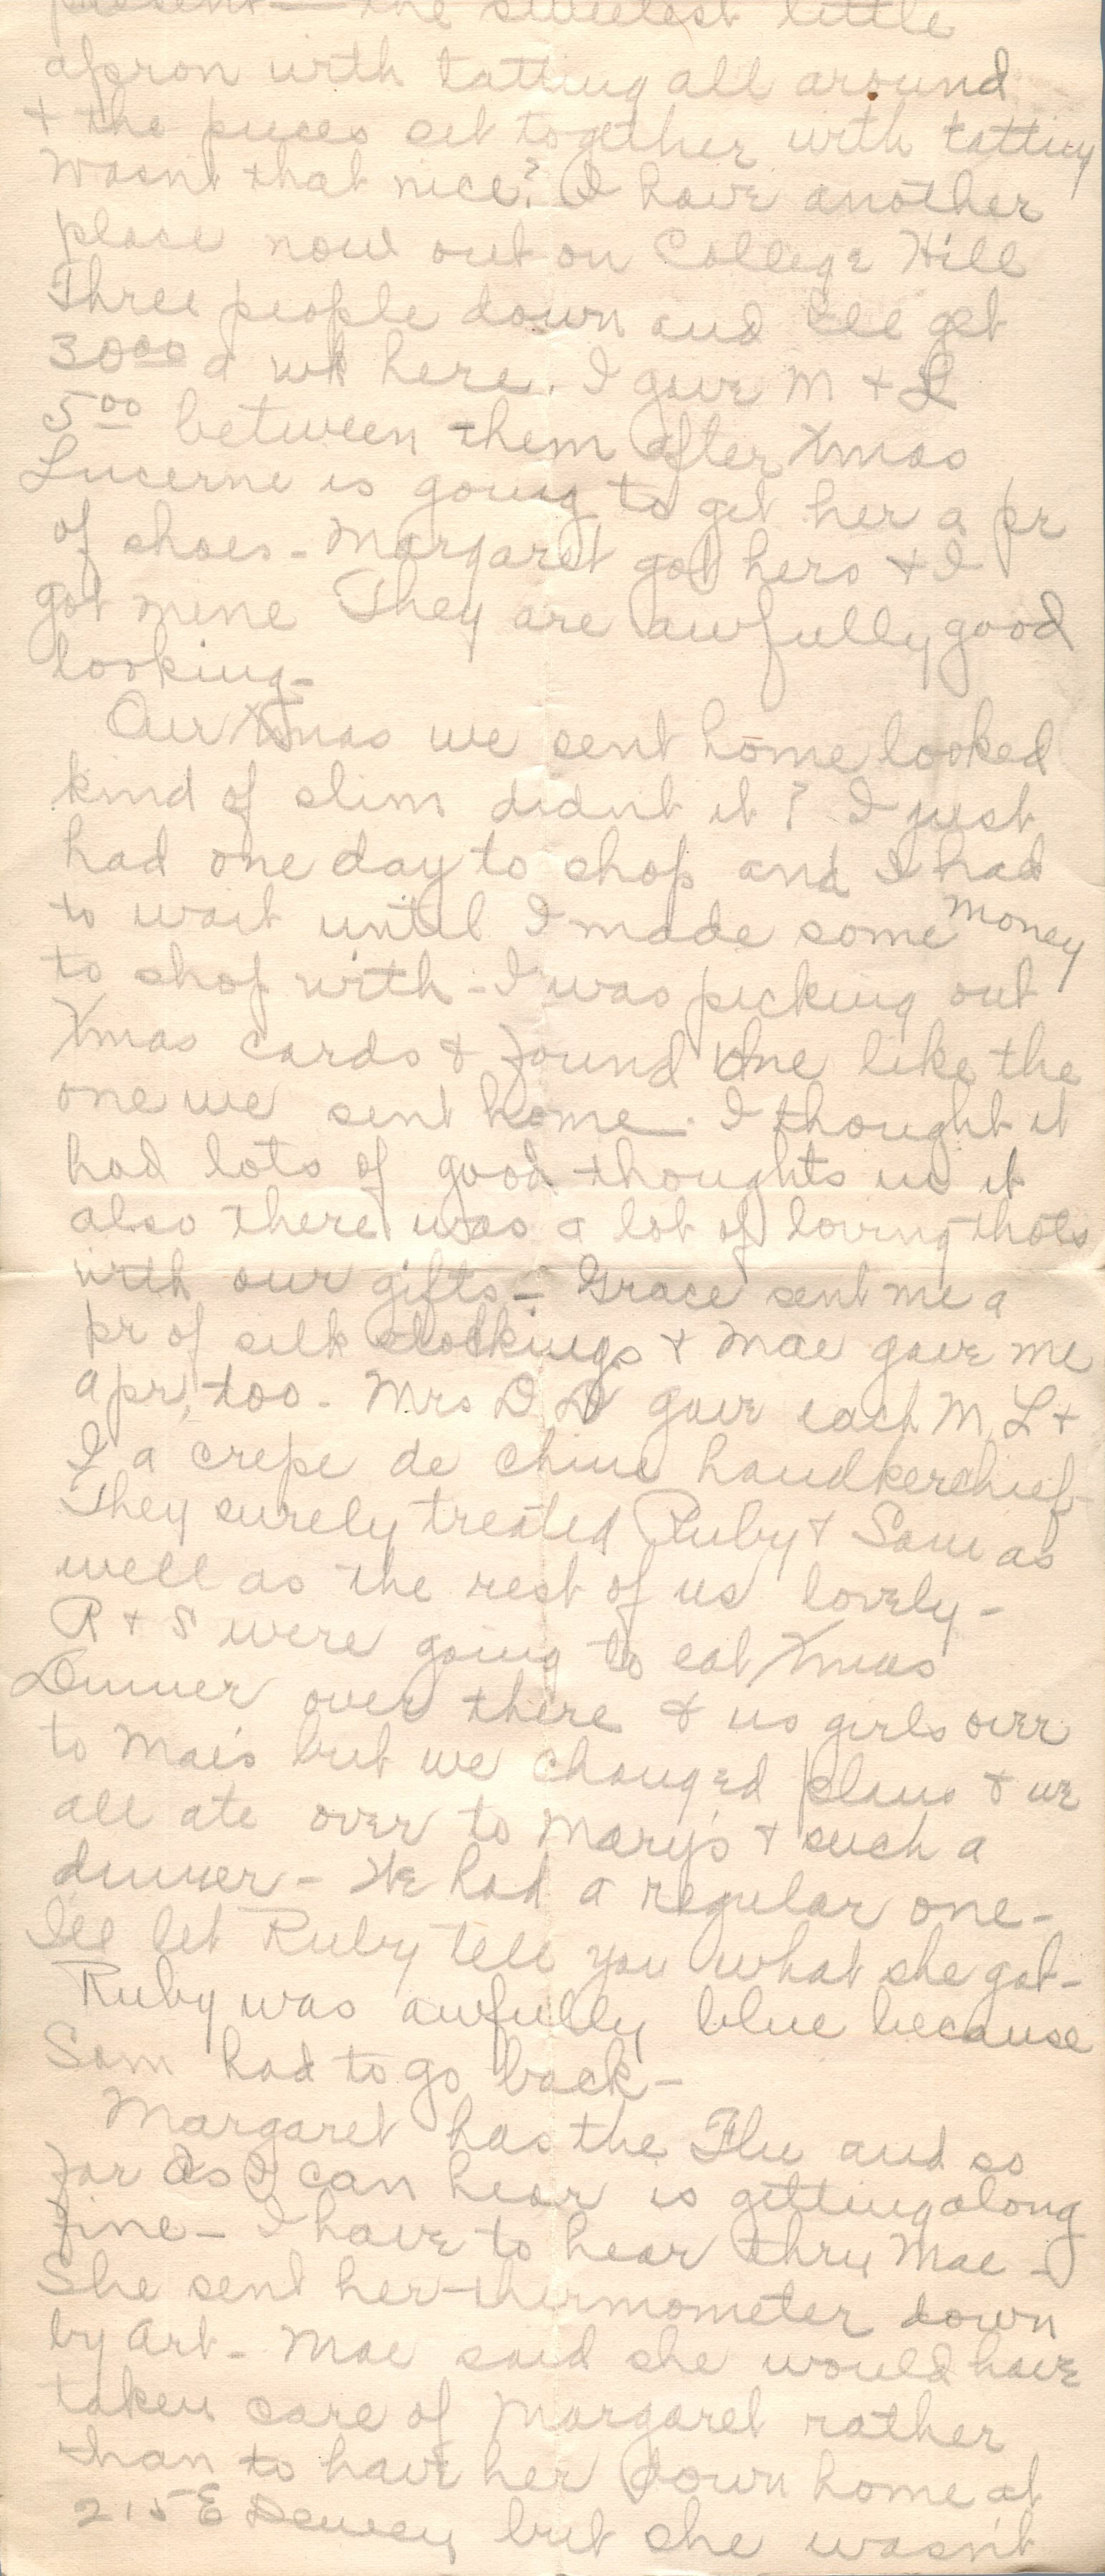 present — the sweetest little
apron with tatting all around
+ the pieces set together with tatting
Wasnt that nice? I have another
place now out on College Hill
Three people down and Ill get
30⁰⁰ a wk here. I gave M + L
5⁰⁰ between them after Xmas
Lucerne is going to get her a pr
of shoes - Margaret got hers + I
got mine They are awfully good
looking -
Our Xmas we sent home looked
kind of slim didnt it? I just
had one day to shop and I had
to wait until I made some money
to shop with - I was picking out
Xmas cards & found one like the
one we sent home. I thought it
had lots of good thoughts in it
also there was a lot of loving thots
with our gifts - Grace sent me a
pr of silk stockings + Mae gave me
a pr, too - Mrs D. gave each M, L +
I a crepe de chine handkerchief -
They surely treated Ruby + Sam as
well as the rest of us lovely -
R + S were going to eat Xmas
Dinner over there & us girls over
to Maes but we changed plans & we
all ate over to Marys + such a
dinner - We had a regular one -
Ill let Ruby tell you what she got -
Ruby was awfully blue because
Sam had to go back -
Margaret has the Flu and so
far as I can hear is getting along
fine - I have to hear thru Mae -
She sent her thermometer down
by Art - Mae said she would have
taken care of Margaret rather
than to have her down home at
215 E Dewey but she wasnt